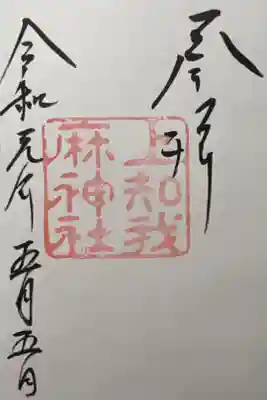 奉拝
上知我
麻神社
令和元年五月五日